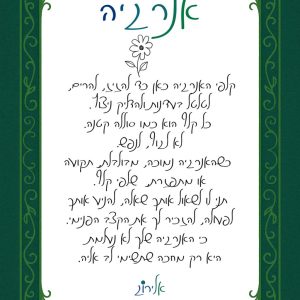 אנרגיה
קלפי האנרגיה כאן כדי להזיז, להרים,
לטלטל בעדינות ולהדליק ניצוץ.
כל קלף הוא כמו סוללה קטנה.
לא לגוף, לנפש.
כשהאנרגיה נמוכה, מבולבלת, תקועה
או מתפזרת, שלפי קלף.
תני לו לשאול אותך שאלה, להניע אותך
לפעולה, להזכיר לך את הקצב הפנימי.
כי האנרגיה שלך לא נעלמת
היא רק מחכה שתשימי לב אליה.